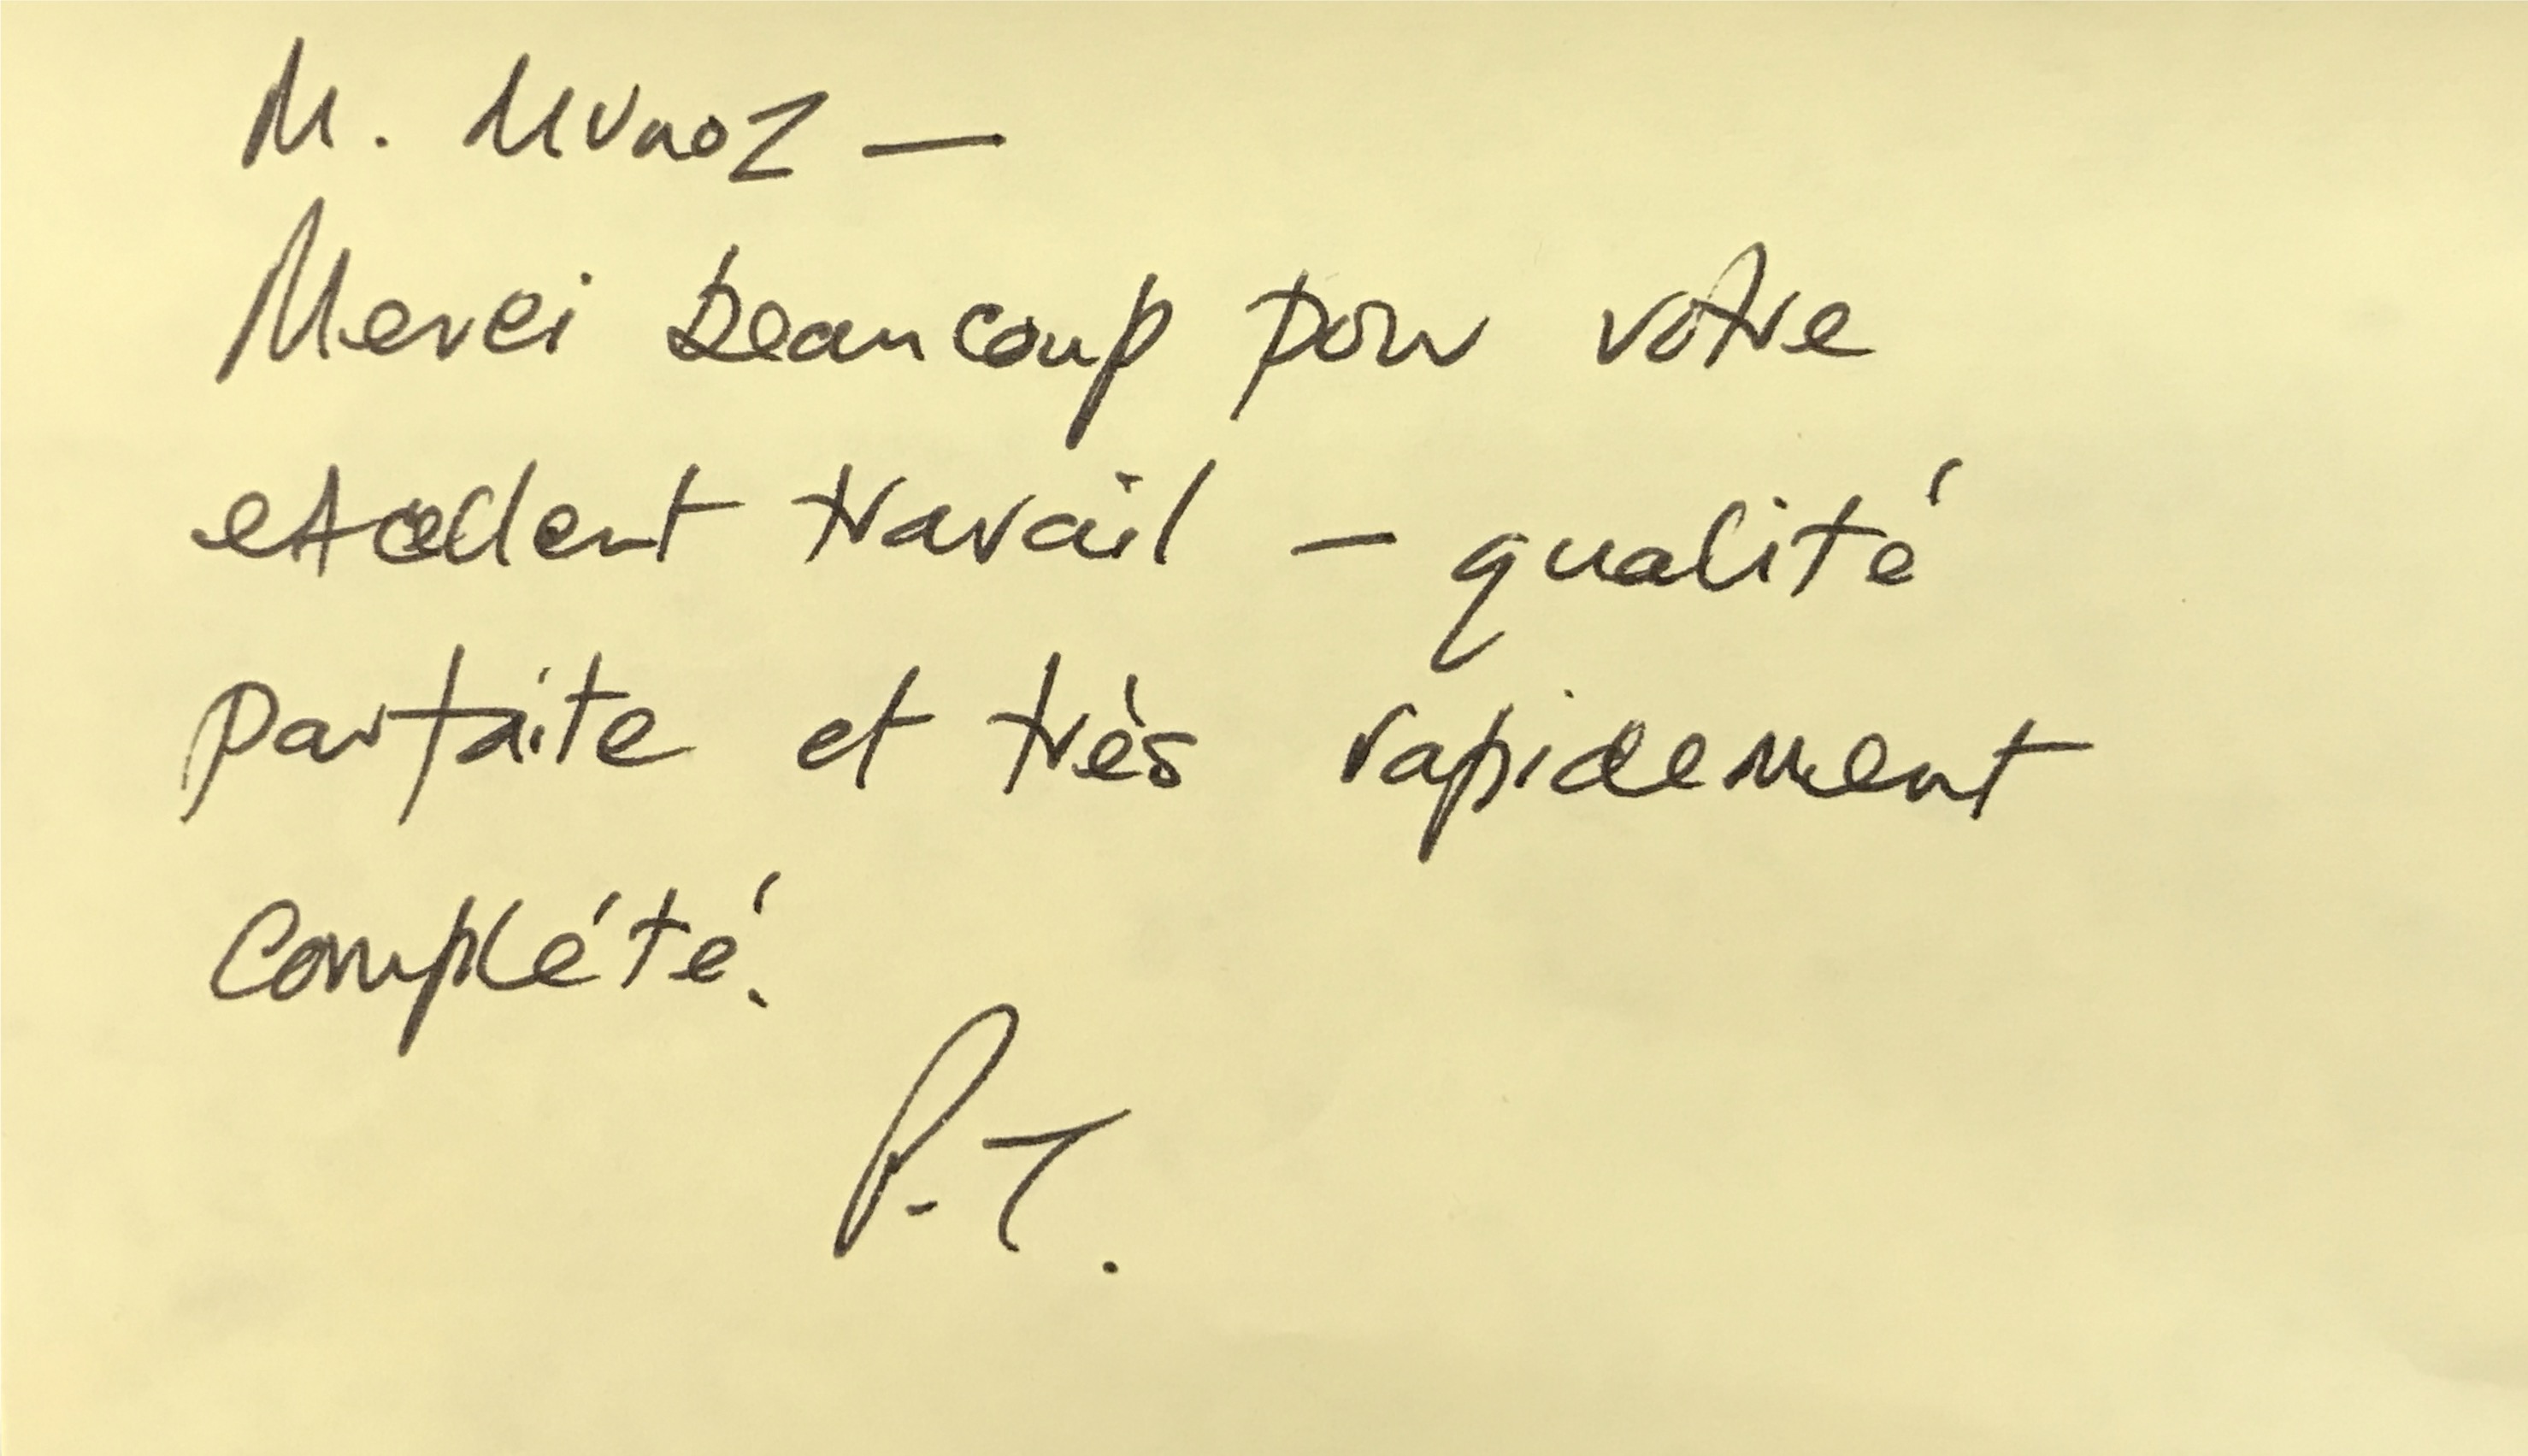 M. Munoz —
Merci beaucoup pour votre
excellent travail - qualité
parfaite et très rapidement
complété.
P.T.